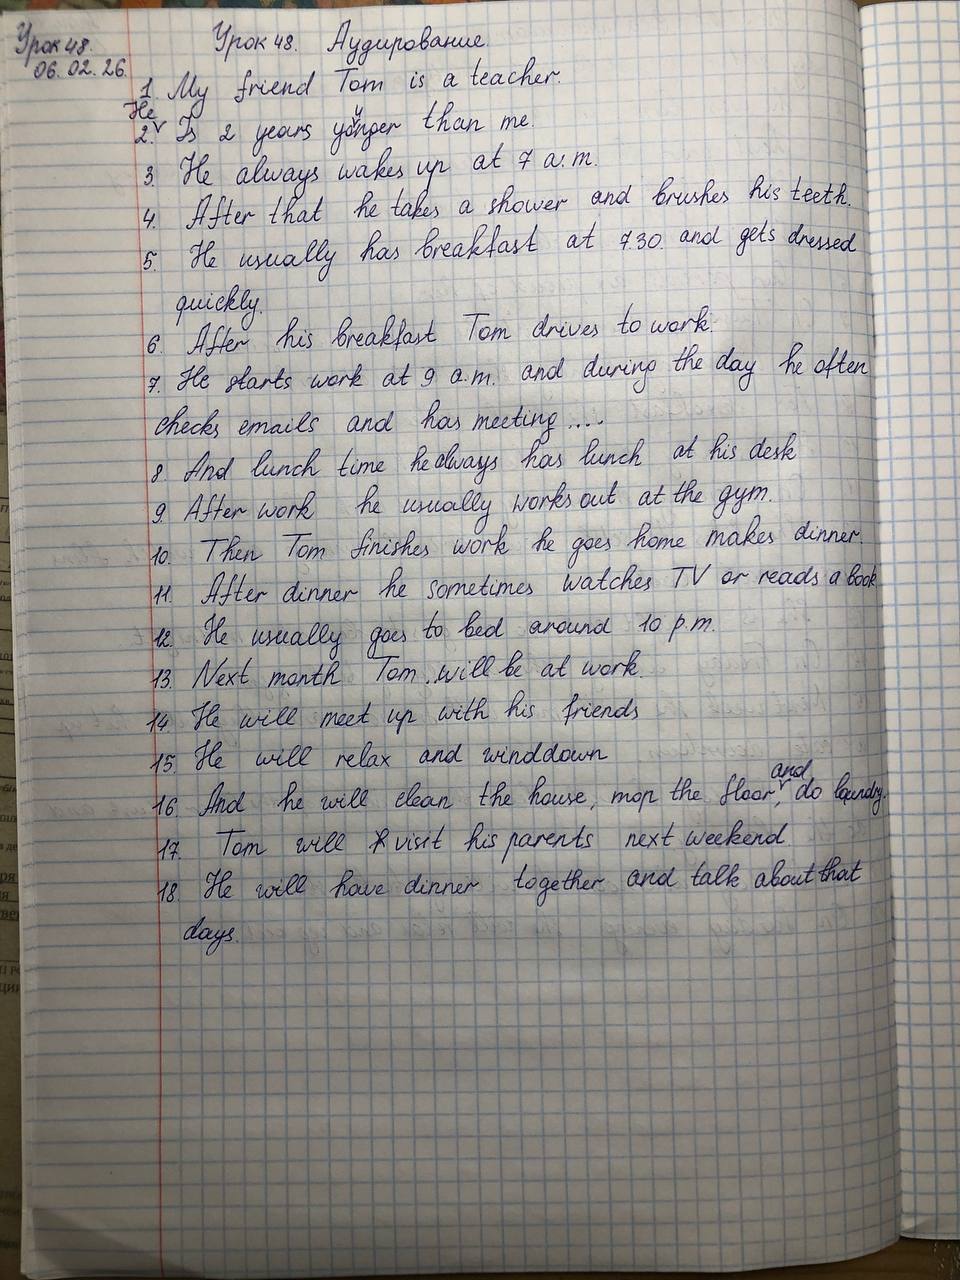 Урок 48.
06.02.26.
Урок 48. Аудирование.
1. My friend Tom is a teacher.
He
2. Is 2 years younger than me.
3. He always wakes up at 7 a.m.
4. After that he takes a shower and brushes his teeth.
5. He usually has breakfast at 7.30 and gets dressed
quickly.
6. After his breakfast Tom drives to work.
7. He starts work at 9 a.m. and during the day he often
checks emails and has meeting ....
8. And lunch time he always has lunch at his desk
9. After work he usually works out at the gym.
10. Then Tom finishes work he goes home makes dinner
11. After dinner he sometimes watches TV or reads a book
12. He usually goes to bed around 10 p.m.
13. Next month Tom will be at work.
14. He will meet up with his friends
15. He will relax and winddown
16. And he will clean the house, mop the floor, and do laundry.
17. Tom will visit his parents next weekend.
18. He will have dinner together and talk about that
days.